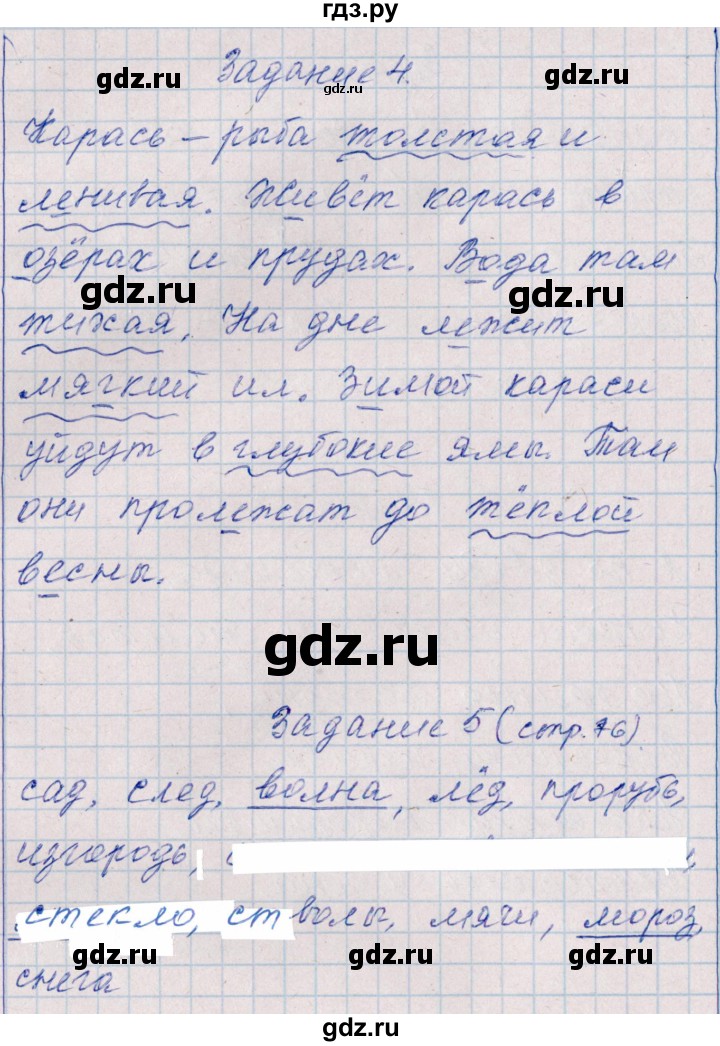 гдз.ру
Задание 4.
Карась – рыба толстая и
ленивая. Живёт карась в
озёрах и прудах. Вода там
тихая. На дне лежит
мягкий ил. Зимой караси
уйдут в глубокие ямы. Там
они пролежат до тёплой
весны.
Задание 5 (стр. 76).
сад, след, волна, лёд, прорубь,
изгородь,
стекло, стволы, мячи, мороз,
снега
gdz.ru
gdz.ru
gdz.ru
gdz.ru
gdz.ru
gdz.ru
gdz.ru
gdz.ru
gdz.ru
gdz.ru